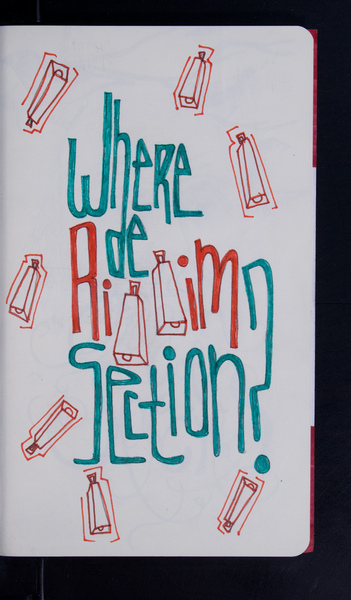 Where
de
Ri im
Section?